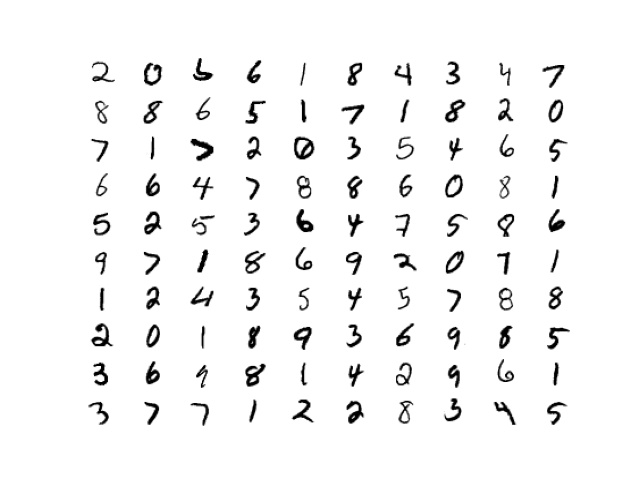 2 0 5 6 1 8 4 3 4 7
8 8 6 5 1 7 1 8 2 0
7 1 7 2 0 3 5 4 6 5
6 6 4 7 8 8 6 0 8 1
5 2 5 3 6 4 7 5 8 6
9 7 1 8 6 9 2 0 7 1
1 2 4 3 5 4 5 7 8 8
2 0 1 8 9 3 6 9 8 5
3 6 9 8 1 4 2 9 6 1
3 7 7 1 2 2 8 3 4 5